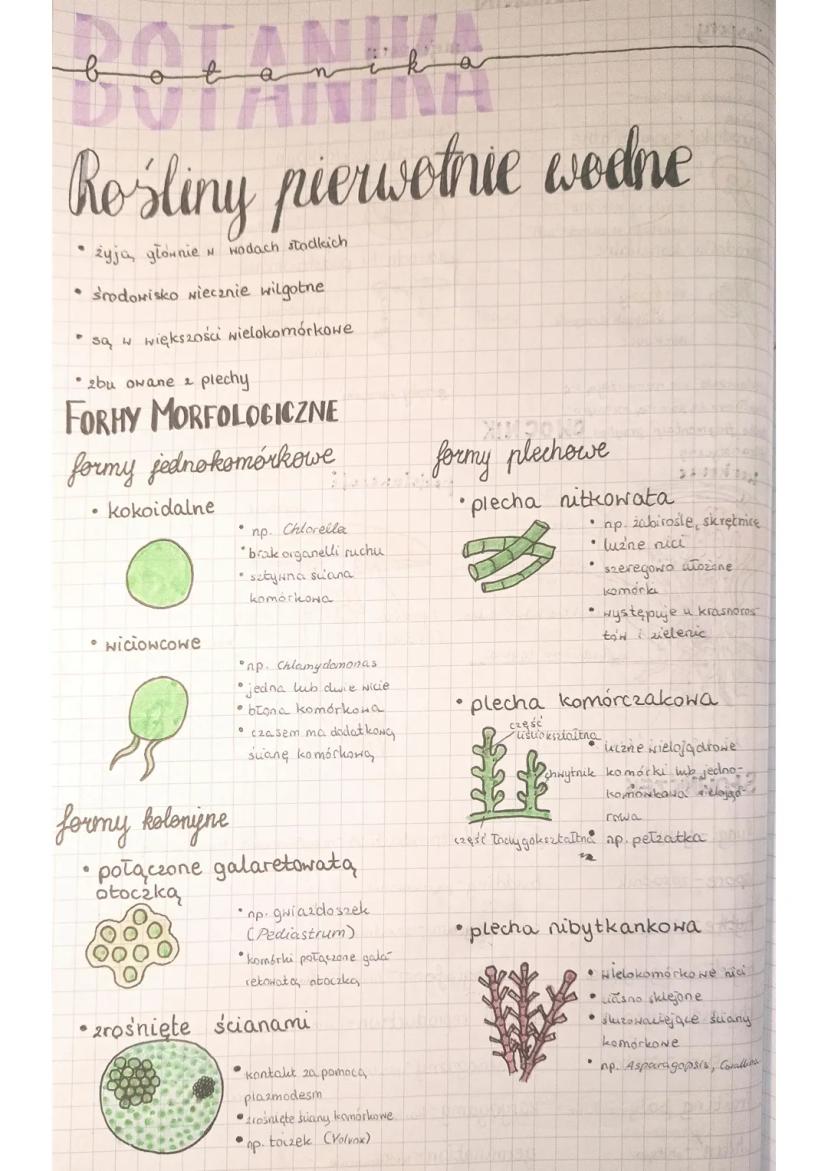 BOTANIKA
botanika
Rośliny pierwotnie wodne
• żyją głównie w wodach słodkich
• środowisko wiecznie wilgotne
• są w większości wielokomórkowe
• zbu owane z plechy
FORMY MORFOLOGICZNE
formy jednokomórkowe
• kokoidalne
• np. Chlorella
• brak organelli ruchu
• sztywna ściana
komórkowa
• wiciowcowe
• np. Chlamydomonas
• jedna lub dwie wicie
• błona komórkowa
• czasem ma dodatkową
ścianę komórkową
formy kolonijne
• połączone galaretowatą
otoczką
• np. gwiazdoszek
(Pediastrum)
• komórki połączone gala-
retowatą otoczką
• zrośnięte ścianami
• kontakt za pomocą
plazmodesm
• zrośnięte ściany komórkowe
• np. toczek (Volvox)
formy plechowe
• plecha nitkowata
• np. żabirośle, skrętnice
• luźne nici
• szeregowo ułożone
komórki
• występuje u krasnoros-
tów i zielenic
• plecha komórczakowa
część
liściokształtna
chwytnik
część łodygokształtna
• liczne wielojądrowe
komórki lub jedno-
komówkowa wielojąd-
rowa
• np. pełzatka
• plecha nibytkankowa
• wielokomórkowe nici
• ciasno sklejone
• śluzowaciejące ściany
komórkowe
• np. Asparagopsis, Corallina